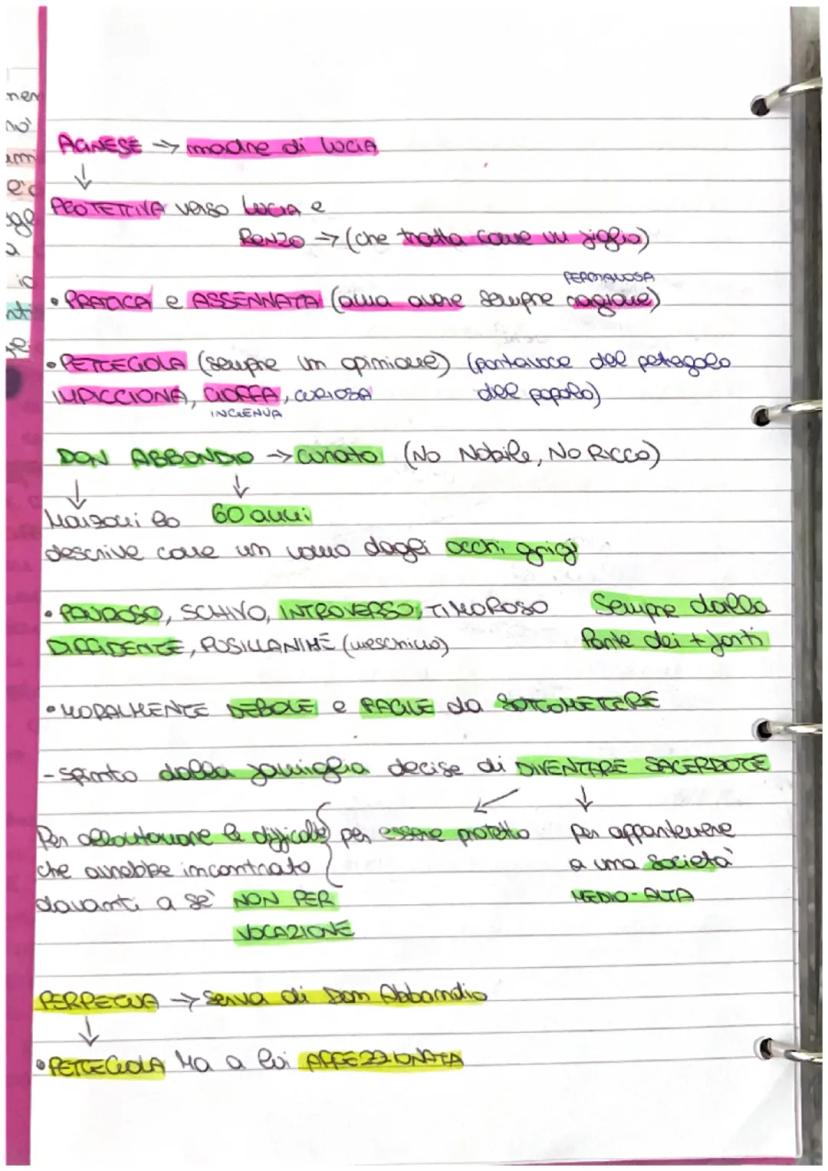 AGNESE → madre di LUCIA
↓
PROTETTIVA verso LUCIA e
RENZO → (che tratta come un figlio)
PERMALOSA
• PRATICA e ASSENNATA (ama avere sempre ragione)
• PETTEGOLA (sempre un opinione) (portavoce del petegolo
IMPICCIONA, GIOFFA, CURIOSA del popolo)
INGENUA
DON ABBONDIO → curato (No Nobile, No Ricco)
↓ ↓
Manzoni lo 60 anni
descrive come un uomo dagli occhi grigi
• PAUROSO, SCHIVO, INTROVERSO, TIMOROSO Sempre dalla
DIFFIDENTE, PUSILLANIME (meschino) Parte dei + forti
• MORALMENTE DEBOLE e FACILE da SOTTOMETTERE
- spinto dalla famiglia decise di DIVENTARE SACERDOTE
↙ ↓
Per allontanare le difficoltà per essere protetto per appartenere
che avrebbe incontrato a una società
davanti a sé NON PER MEDIO-ALTA
VOCAZIONE
PERPETUA → serva di Don Abbondio
↓
• PETTEGOLA Ma a lui AFFEZZIONATA